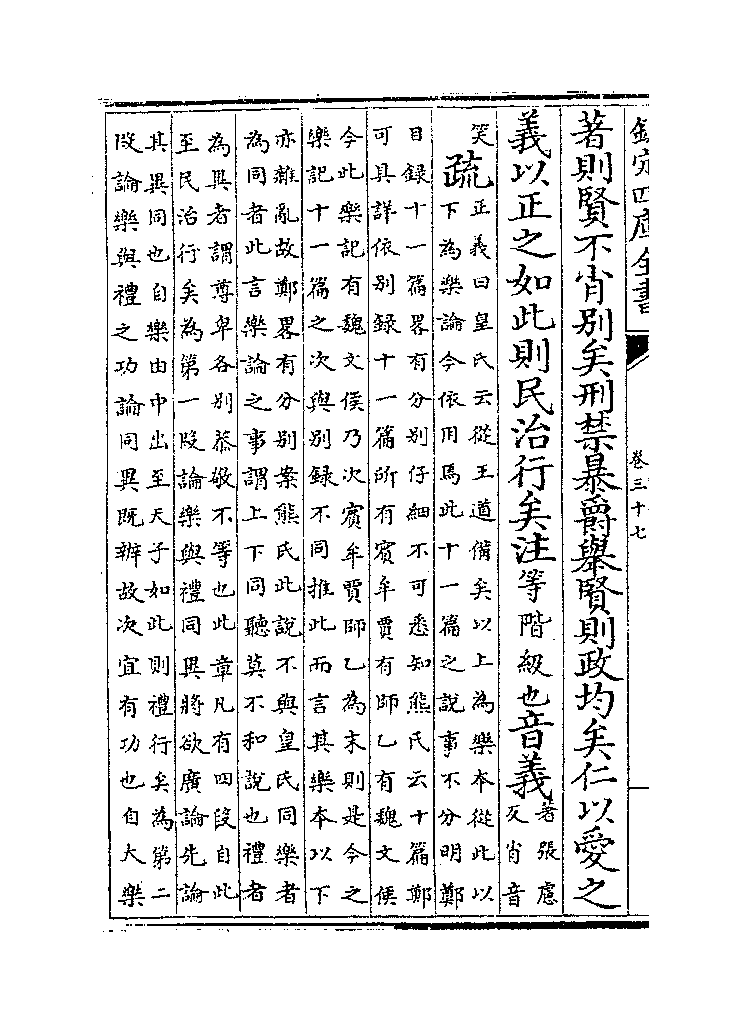 欽定四庫全書
卷三十七
著則賢不肖別矣刑禁暴爵舉賢則政均矣仁以愛之
義以正之如此則民治行矣注等階級也音義
著張慮
反肖音
笑
疏
正義曰皇氏云從王道備矣以上為樂本從此以
下為樂論今依用焉此十一篇之說事不分明鄭
目録十一篇畧有分別仔細不可悉知熊氏云十篇鄭
可具詳依別録十一篇所有賓牟賈有師乙有魏文侯
今此樂記有魏文侯乃次賓牟賈師乙為末則是今之
樂記十一篇之次與別録不同推此而言其樂本以下
亦雜亂故鄭畧有分別案熊氏此說不與皇氏同樂者
為同者此言樂論之事謂上下同聽莫不和說也禮者
為異者謂尊卑各別恭敬不等也此章凡有四段自此
至民治行矣為第一段論樂與禮同異將欲廣論先論
其異同也自樂由中出至天子如此則禮行矣為第二
段論樂與禮之功論同異既辨故次宜有功也自大樂